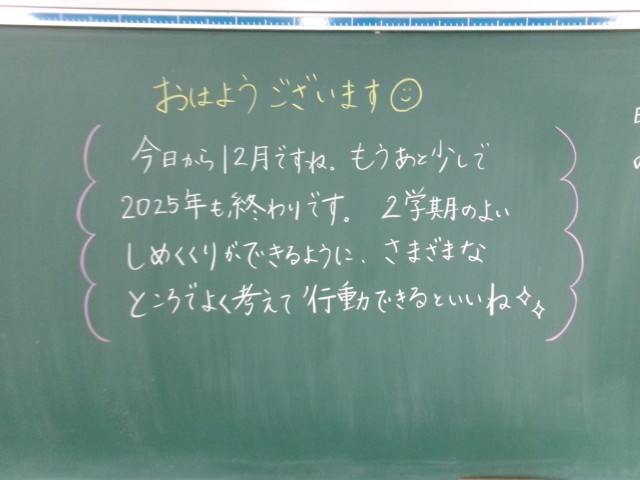 おはようございます☺
今日から12月ですね。もうあと少しで
2025年も終わりです。2学期のよい
しめくくりができるように、さまざまな
ところでよく考えて行動できるといいね✧✧